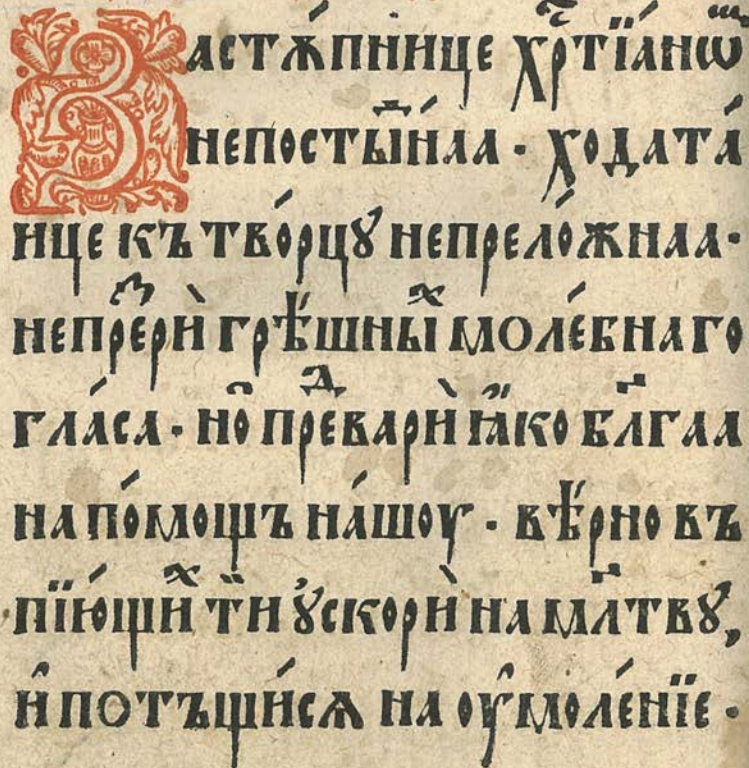 Застѫ́пнице хрⷭ҇тїа́нѡⷨ
непостыⷣ҇і́наа · ходата́
ице къ тво́рцꙋ непрело́жнаа ·
непрⷥе́рѝ грѣ́шныⷯ і моле́бнаго
гла́са · но̑ преⷣварѝ ꙗ҆́ко блⷢ҇гаа
на по́мощъ на́шоу · вѣ́рно въ
пїю́щиⷯ ти ᲂу҆скорѝ на млⷧ҇твꙋ,
и҆ потъщи́сѧ на ᲂу҆моле́нїе ·